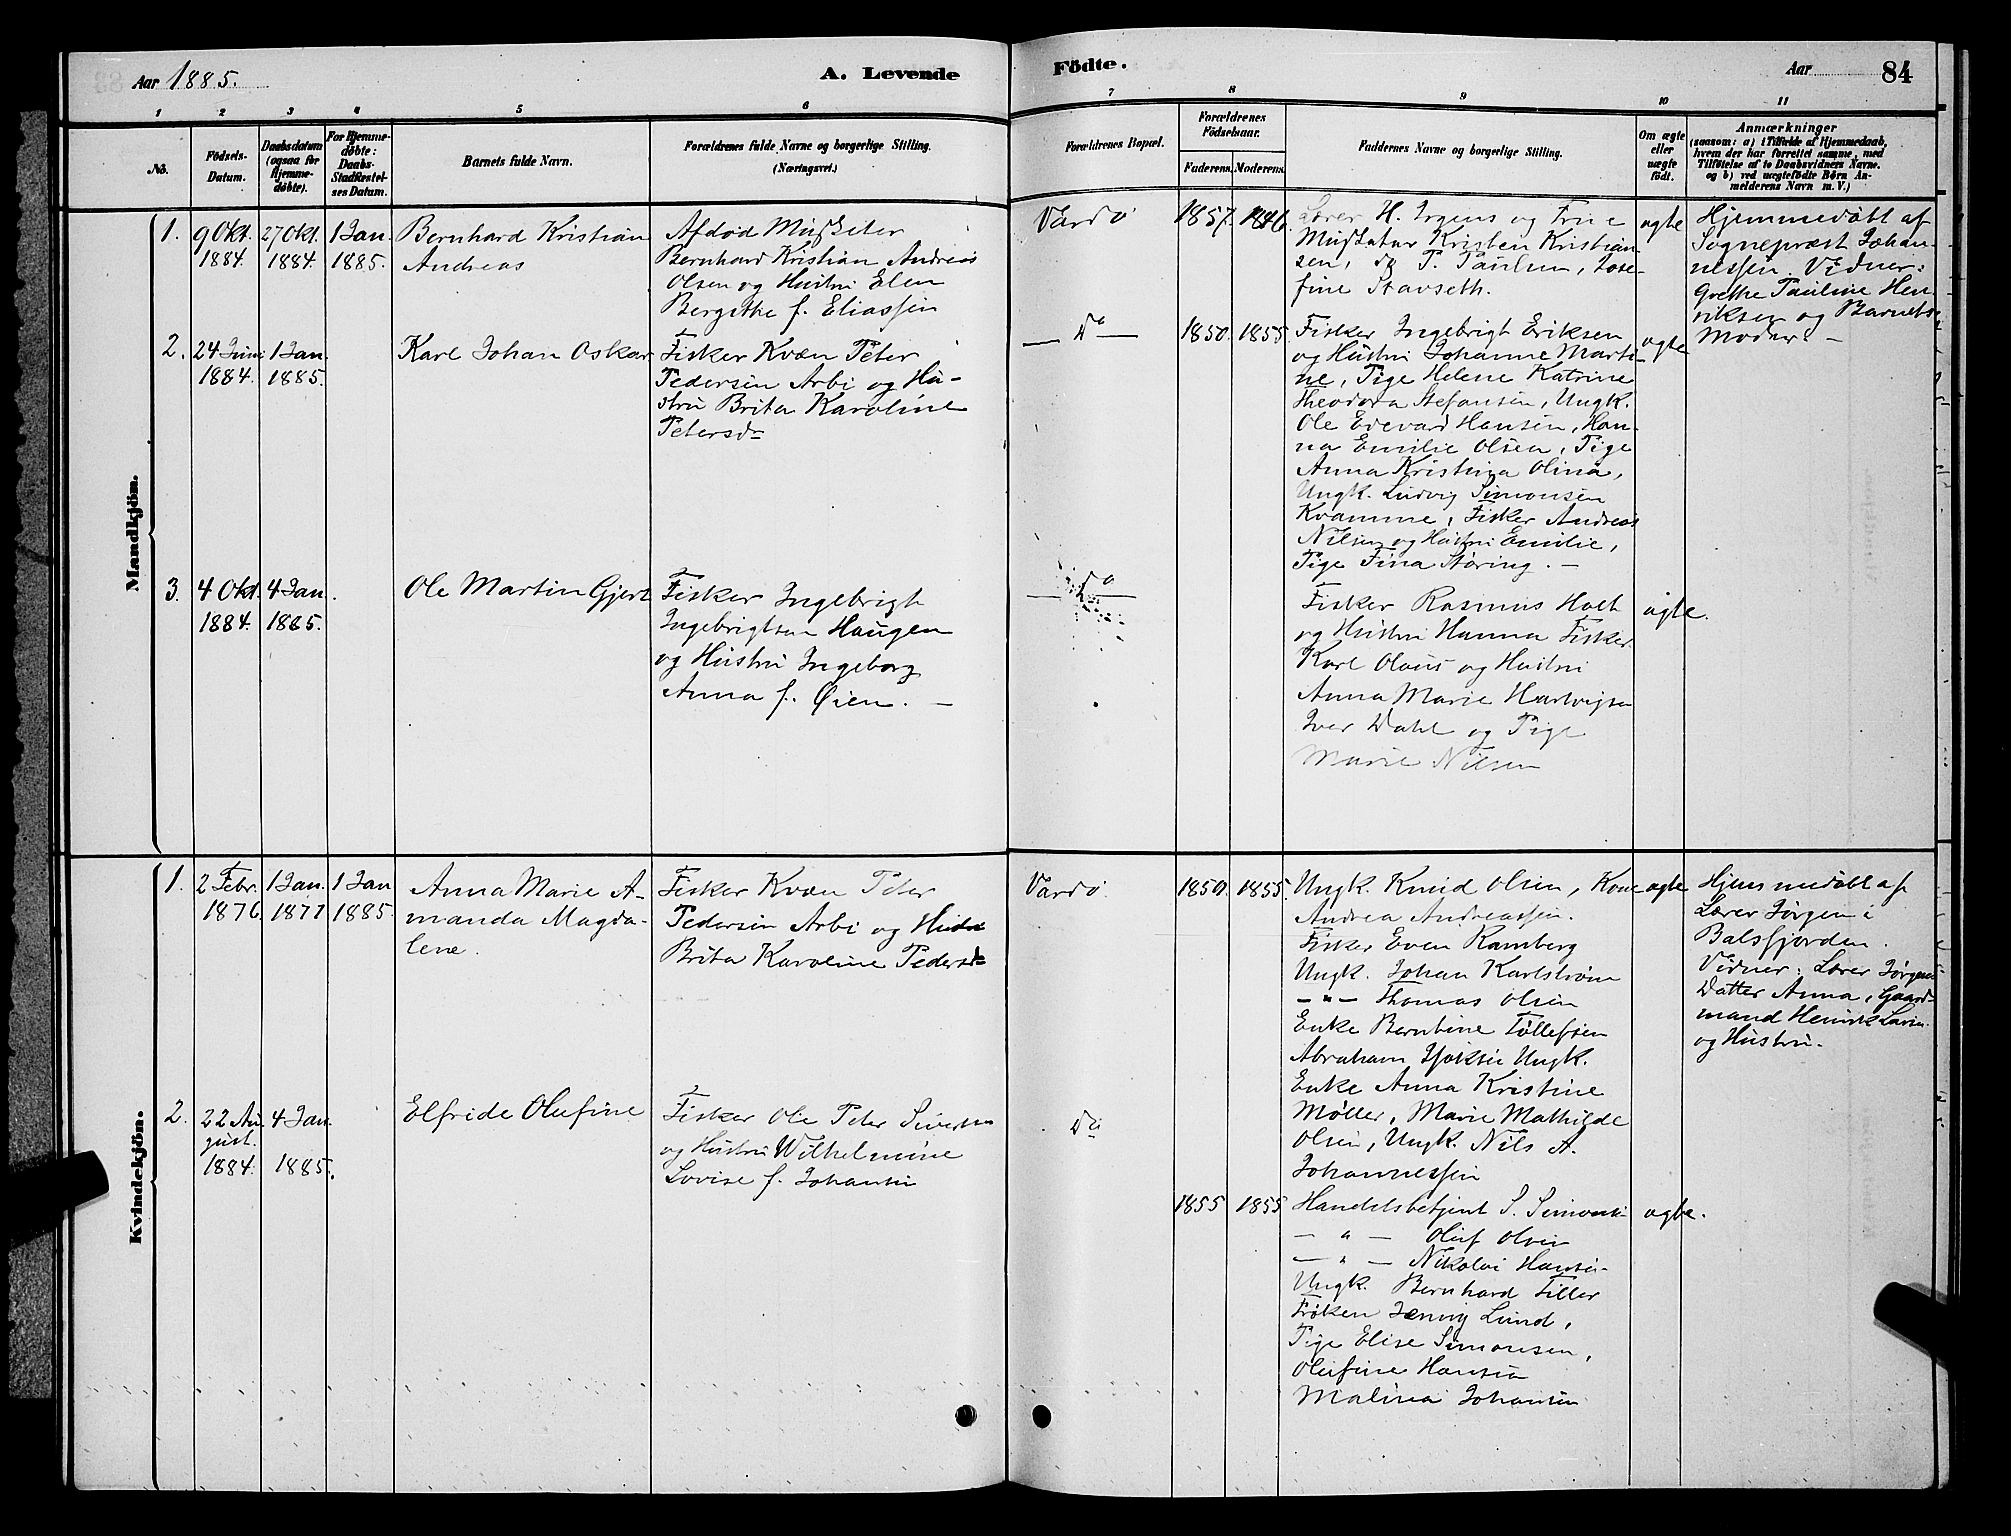 Aar 1885.
A. Levende
Födte.
Aar
84
1
2
3
4
5
6
7
8
9
10
11
No.
Födsels-
Datum.
Daabsdatum
(ogsaa for
Hjemme-
döbte).
For Hjemme-
döbte:
Daabs-
Stadfæstel-
ses Datum.
Barnets fulde Navn.
Forældrenes fulde Navne og borgerlige Stilling.
(Næringsvei.)
Forældrenes Bopæl.
Forældrenes
Födselsaar.
Faderens.
Moderens.
Faddernes Navne og borgerlige Stilling.
Om ægte
eller
uægte
födt.
Anmærkninger
(saasom: a) i Tilfælde af Hjemmedaab,
hvem der har forrettet samme, med
Tilföielse af to Daabsvidners Navne.
og b) ved uægtefödte Börn An-
melderens Navn m. V.)
Mandkjön.
1.
9 Okt.
1884.
27 Okt.
1884.
1 Jan.
1885.
Bernhard Kristian
Andreas
Afdød
Bernhard Kristian Andreas
Olsen og Hustru Elen
Bergithe f. Eliassen
Vardø
1857.
1846.
Lærer H. Irgens og Frue
Kristen Kristian-
sen, P. Paulsen, Jose-
fine Stavseth.
ægte
Hjemmedøbt af
Sognepræst Johan-
nessen. Vidner:
Grethe Pauline Hen-
riksen og Barnets
Moder. —
2.
24 Juni
1884.
1 Jan.
1885.
Karl Johan Oskar
Fisker Kvæn Peter
Pedersen Arbi og Hu-
stru Brita Karoline
Petersdr
— Do —
1850.
1855.
Fisker Ingebrigt Eriksen
og Hustru Johanne Marti-
ne, Pige Helene Katrine
Theodora Stefansen, Ungk.
Ole Edevard Hansen, Han-
na Emilie Olsen, Pige
Anna Kristina Olina,
Ungk. Ludvig Simonsen
Kvamme, Fisker Andreas
Nilsen og Hustru Emilie,
Pige Fina Støring. —
ægte
3.
4 Okt.
1884.
4 Jan.
1885.
Ole Martin Gjert
Fisker Ingebrigt
Ingebrigtsen Haugen
og Hustru Ingeborg
Anna f. Øien. —
— Do —
Fisker Rasmus Holt
og Hustru Hanna Fisker
Karl Olaus og Hustru
Anna Marie Hartvigsen
Iver Dahl og Pige
Marie Nilsen
ægte.
Kvindekjön.
1.
2 Febr.
1876
1 Jan.
1877
1 Jan
1885.
Anna Marie A-
manda Magda-
lene.
Fisker Kvæn Peter
Pedersen Arbi og Hustru
Brita Karoline Pedersdr
Vardø
1850.
1855.
Ungk. Knud Olsen, Kone
Andrea Andreassen.
Fisker Even Ramberg
Ungk. Johan Karlstrøm
— " — Thomas Olsen
Enke Berntine Tollefsen
Abraham Ungk.
Enke Anna Kristine
Møller, Marie Mathilde
Olsen, Ungk. Nils A.
Johannessen
ægte
Hjemmedøbt af
Lærer Jørgen i
Balsfjorden.
Vidner: Lærer Jørgens
Datter Anna, Gaard-
mand Henrik
og Hustru.
2.
22 Au-
gust.
1884.
4 Jan.
1885.
Elfride Olufine
Fisker Ole Peter Sivertsen
og Hustru Wilhelmine
Lovise f. Johansen
Do
1855
1855
Handelsbetjent S. Simonsen
— " — Oluf Olsen
— " — Nikolai Hansen
Ungk. Bernhard Tiller
Frøken Lund,
Pige Elise Simonsen,
Olufine Hansen
Malina Johansen
ægte.